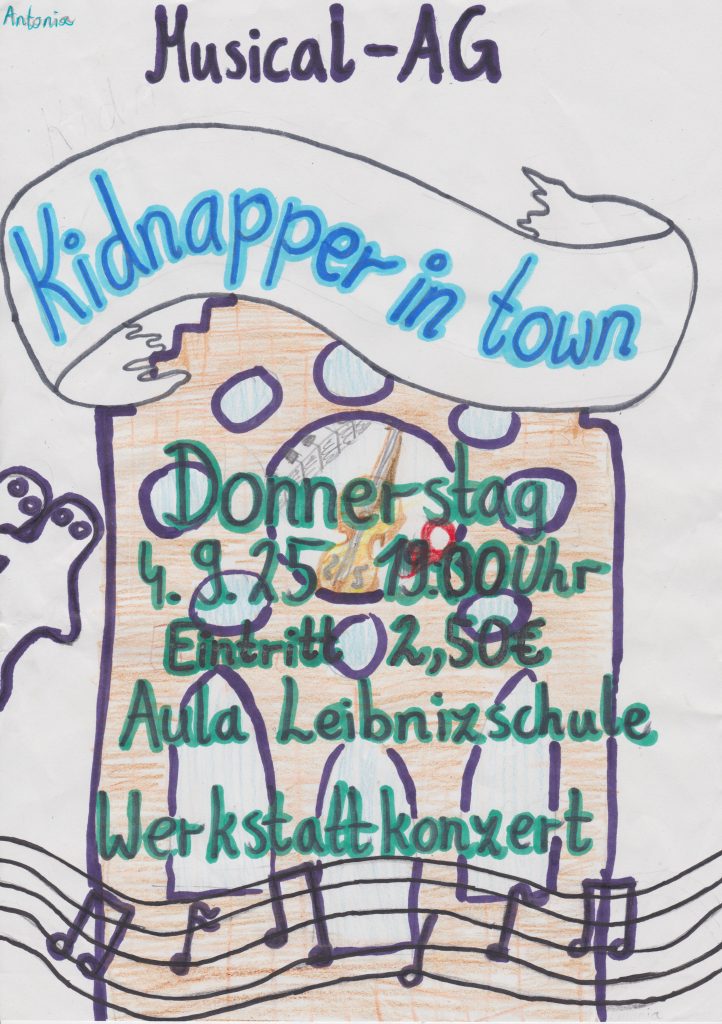 Antonia
Musical-AG
Kidnapper in town
Donnerstag
4.9.25 19:00 Uhr
Eintritt 2,50€
Aula Leibnizschule
Werkstattkonzert